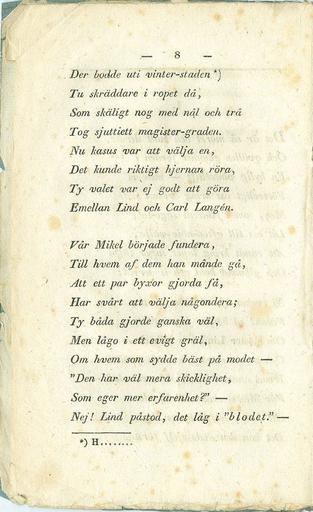 — 8 —
Der bodde uti vinter-staden *)
Tu skräddare i ropet då,
Som skäligt nog med nål och trå
Tog sjuttiett magister-graden.
Nu kasus var att välja en,
Det kunde riktigt hjernan röra,
Ty valet var ej godt att göra
Emellan Lind och Carl Langén.
Vår Mikel började fundera,
Till hvem af dem han månde gå,
Att ett par byxor gjorda få,
Har svårt att välja någondera;
Ty båda gjorde ganska väl,
Men lågo i ett evigt gräl,
Om hvem som sydde bäst på modet —
"Den har väl mera skicklighet,
Som eger mer erfarenhet?" —
Nej! Lind påstod, det låg i "blodet." —
*) H........